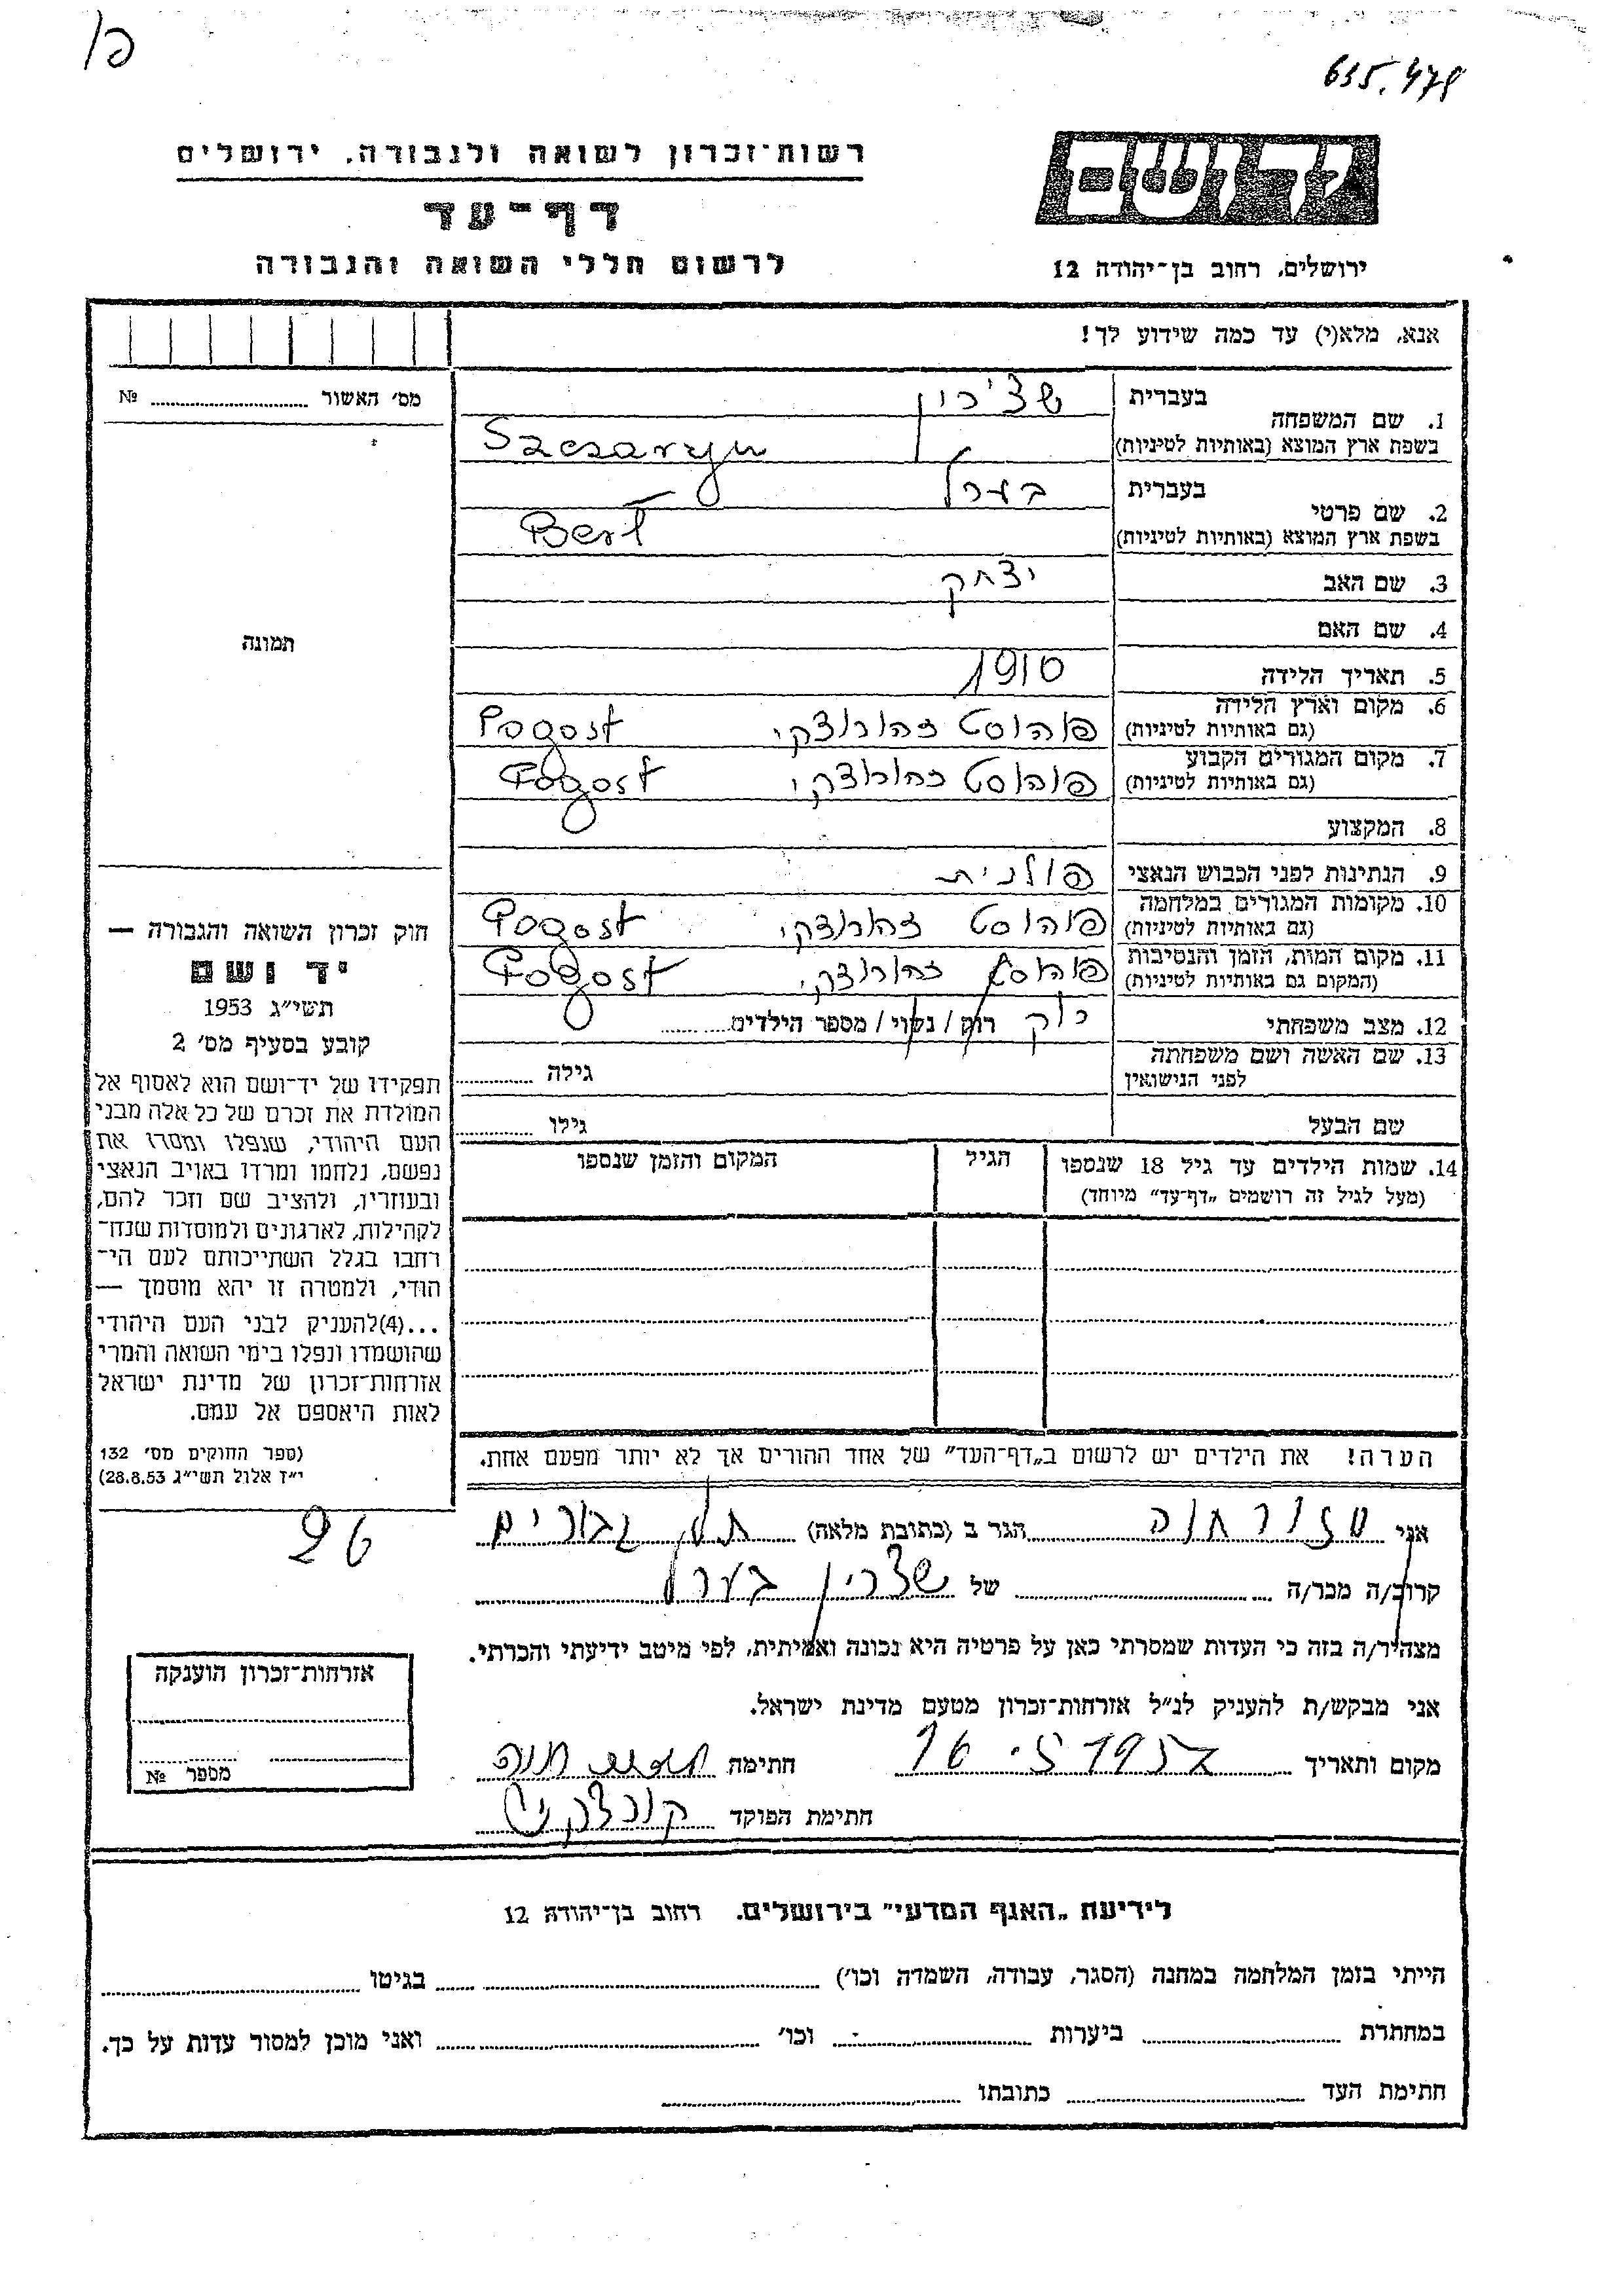 פו
615.478
רשות־זכרון לשואה ולגבורה, ירושלים
דף־עד
לרשום חללי השואה והגבורה
יד ושם
ירושלים, רחוב בן־יהודה 12
אנא, מלא(י) עד כמה שידוע לך!
מס׳ האשור № 
1. שם המשפחה
בעברית שצ'רין
בשפת ארץ המוצא (באותיות לטיניות) Szczaryn
2. שם פרטי
בעברית בערל
בשפת ארץ המוצא (באותיות לטיניות) Berł
3. שם האב יצחק
4. שם האם
5. תאריך הלידה 1910
6. מקום וארץ הלידה
(גם באותיות לטיניות) פוהוסט זהורוצקי Pogost
7. מקום המגורים הקבוע
(גם באותיות לטיניות) פוהוסט זהורוצקי Pogost
8. המקצוע
9. הנתינות לפני הכבוש הנאצי פולנית
10. מקומות המגורים במלחמה
(גם באותיות לטיניות) פוהוסט זהורוצקי Pogost
11. מקום המות, הזמן והנסיבות
(המקום גם באותיות לטיניות) פוהוסט זהורוצקי Pogost
12. מצב משפחתי רוק רווק / נשוי / מספר הילדים
13. שם האשה ושם משפחתה
לפני הנישואין גילה
שם הבעל גילו
14. שמות הילדים עד גיל 18 שנספו הגיל המקום והזמן שנספו
(מעל לגיל זה רושמים „דף־עד״ מיוחד)
הערה! את הילדים יש לרשום ב„דף־העד״ של אחד ההורים אך לא יותר מפעם אחת.
תמונה
חוק זכרון השואה והגבורה —
יד ושם
תשי״ג 1953
קובע בסעיף מס׳ 2
תפקידו של יד־ושם הוא לאסוף אל
המולדת את זכרם של כל אלה מבני
העם היהודי, שנפלו ומסרו את
נפשם, נלחמו ומרדו באויב הנאצי
ובעוזריו, ולהציב שם וזכר להם,
לקהילות, לארגונים ולמוסדות שנח־
רבו בגלל השתייכותם לעם הי־
הודי, ולמטרה זו יהא מוסמך —
...(4)להעניק לבני העם היהודי
שהושמדו ונפלו בימי השואה והמרי
אזרחות־זכרון של מדינת ישראל
לאות היאספם אל עמם.
(ספר החוקים מס׳ 132
י״ז אלול תשי״ג 28.8.53)
26
אני חנה הגר ב (כתובת מלאה) גבורים
קרוב/ה מכר/ה של שצרין בערל
מצהיר/ה בזה כי העדות שמסרתי כאן על פרטיה היא נכונה ואמיתית, לפי מיטב ידיעתי והכרתי.
אני מבקש/ת להעניק לנ״ל אזרחות־זכרון מטעם מדינת ישראל.
מקום ותאריך 16.5.1957 חתימה
חתימת הפוקד
אזרחות־זכרון הוענקה
מספר №
לידיעת „האגף המדעי״ בירושלים. רחוב בן־יהודה 12
הייתי בזמן המלחמה במחנה (הסגר, עבודה, השמדה וכו׳) בגיטו
במחתרת ביערות וכו׳ ואני מוכן למסור עדות על כך.
חתימת העד כתובתו